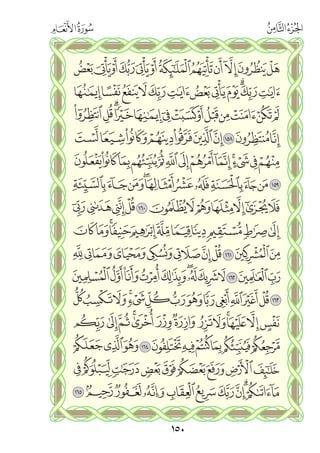 الجُزْءُ الثَّامِنُ
سُورَةُ الأَنْعَامِ
هَلْ يَنظُرُونَ إِلَّآ أَن تَأْتِيَهُمُ ٱلْمَلَـٰٓئِكَةُ أَوْ يَأْتِيَ رَبُّكَ أَوْ يَأْتِيَ بَعْضُ
ءَايَـٰتِ رَبِّكَ ۗ يَوْمَ يَأْتِى بَعْضُ ءَايَـٰتِ رَبِّكَ لَا يَنفَعُ نَفْسًا إِيمَـٰنُهَا
لَمْ تَكُنْ ءَامَنَتْ مِن قَبْلُ أَوْ كَسَبَتْ فِىٓ إِيمَـٰنِهَا خَيْرًا ۗ قُلِ ٱنتَظِرُوٓا۟
إِنَّا مُنتَظِرُونَ ١٥٨ إِنَّ ٱلَّذِينَ فَرَّقُوا۟ دِينَهُمْ وَكَانُوا۟ شِيَعًا لَّسْتَ
مِنْهُمْ فِى شَىْءٍ ۚ إِنَّمَآ أَمْرُهُمْ إِلَى ٱللَّهِ ثُمَّ يُنَبِّئُهُم بِمَا كَانُوا۟ يَفْعَلُونَ
١٥٩ مَن جَآءَ بِٱلْحَسَنَةِ فَلَهُۥ عَشْرُ أَمْثَالِهَا ۖ وَمَن جَآءَ بِٱلسَّيِّئَةِ
فَلَا يُجْزَىٰٓ إِلَّا مِثْلَهَا وَهُمْ لَا يُظْلَمُونَ ١٦٠ قُلْ إِنَّنِى هَدَىٰنِى رَبِّىٓ
إِلَىٰ صِرَٰطٍ مُّسْتَقِيمٍ دِينًا قِيَمًا مِّلَّةَ إِبْرَٰهِيمَ حَنِيفًا ۚ وَمَا كَانَ
مِنَ ٱلْمُشْرِكِينَ ١٦١ قُلْ إِنَّ صَلَاتِى وَنُسُكِى وَمَحْيَاىَ وَمَمَاتِى لِلَّهِ
رَبِّ ٱلْعَـٰلَمِينَ ١٦٢ لَا شَرِيكَ لَهُۥ ۖ وَبِذَٰلِكَ أُمِرْتُ وَأَنَا۠ أَوَّلُ ٱلْمُسْلِمِينَ
١٦٣ قُلْ أَغَيْرَ ٱللَّهِ أَبْغِى رَبًّا وَهُوَ رَبُّ كُلِّ شَىْءٍ ۚ وَلَا تَكْسِبُ كُلُّ
نَفْسٍ إِلَّا عَلَيْهَا ۚ وَلَا تَزِرُ وَازِرَةٌ وِزْرَ أُخْرَىٰ ۚ ثُمَّ إِلَىٰ رَبِّكُم
مَّرْجِعُكُمْ فَيُنَبِّئُكُم بِمَا كُنتُمْ فِيهِ تَخْتَلِفُونَ ١٦٤ وَهُوَ ٱلَّذِى جَعَلَكُمْ
خَلَـٰٓئِفَ ٱلْأَرْضِ وَرَفَعَ بَعْضَكُمْ فَوْقَ بَعْضٍ دَرَجَـٰتٍ لِّيَبْلُوَكُمْ فِى
مَآ ءَاتَىٰكُمْ ۗ إِنَّ رَبَّكَ سَرِيعُ ٱلْعِقَابِ وَإِنَّهُۥ لَغَفُورٌ رَّحِيمٌۢ ١٦٥
١٥٠